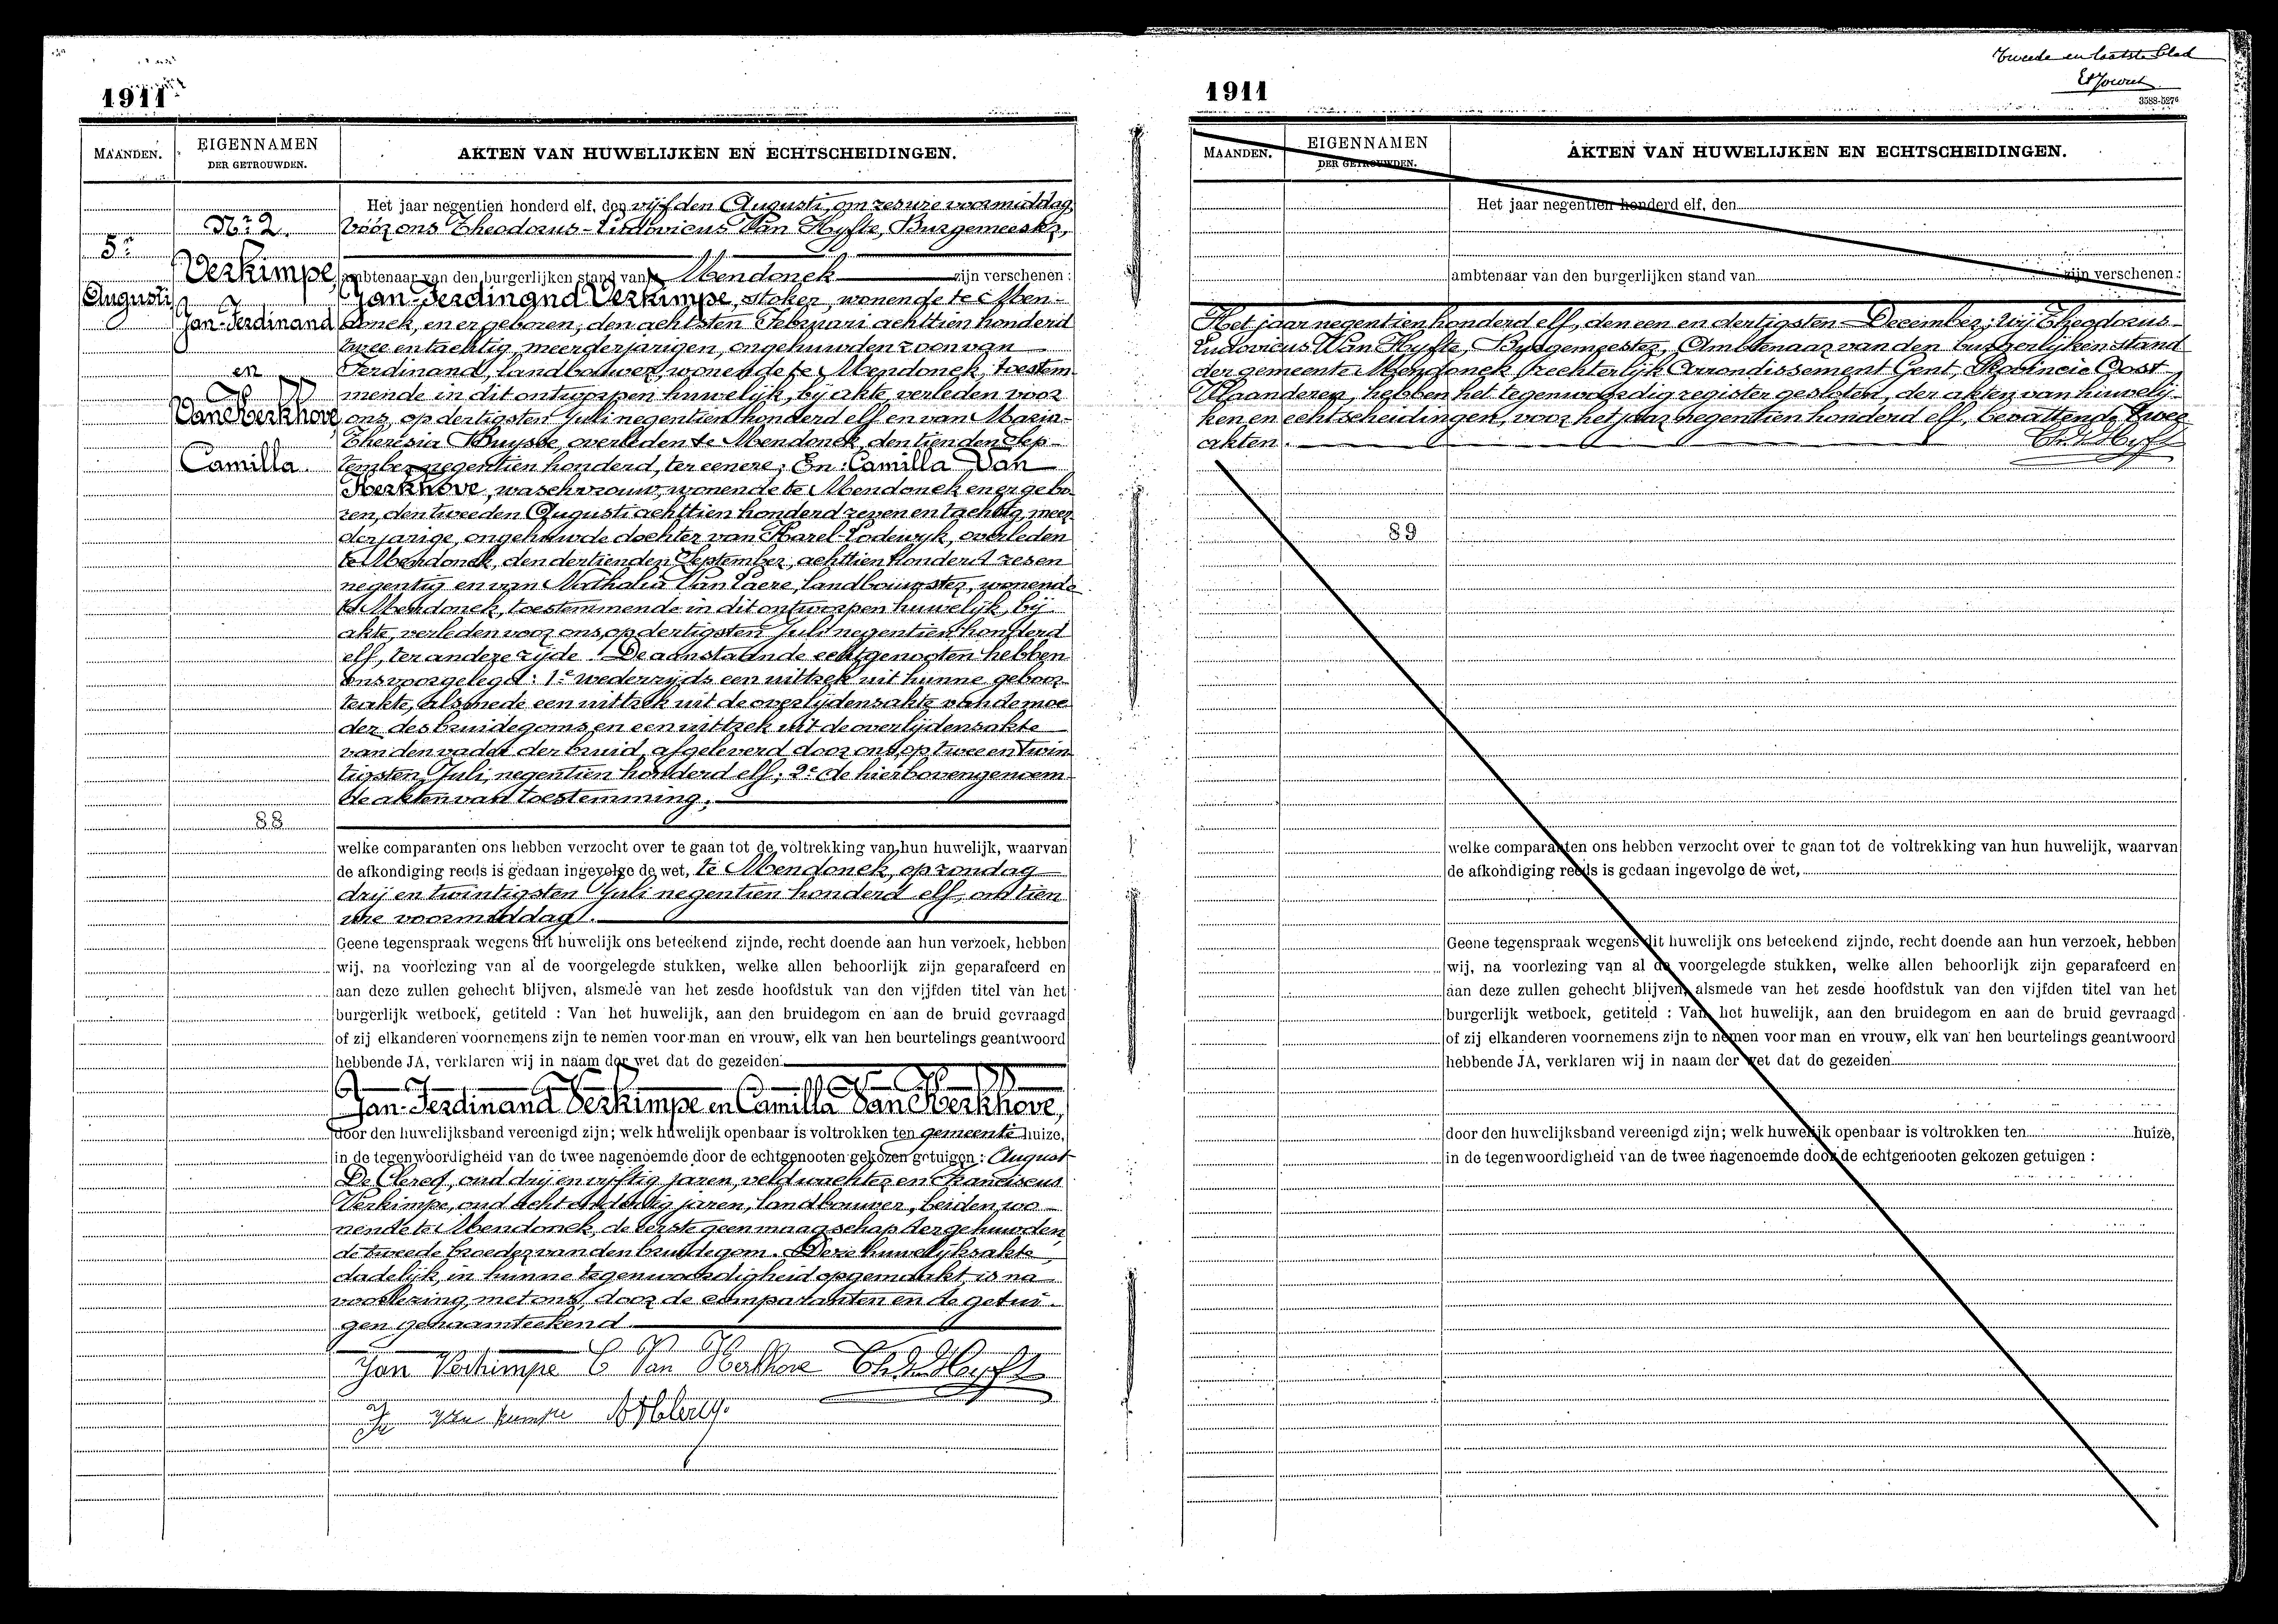 1911
MAANDEN.
EIGENNAMEN
DER GETROUWDEN.
AKTEN VAN HUWELIJKEN EN ECHTSCHEIDINGEN.
5n
Augusti
Nr 2.
Verkimpe,
Jan-Ferdinand
en
Van Kerkhove,
Camilla.
88
Het jaar negentien honderd elf, den vijfden Augusti, om zes ure voormiddag,
vóór ons Theodorus-Ludovicus Van Hyfte, Burgemeester,
ambtenaar van den burgerlijken stand van Mendonck zijn verschenen :
Jan-Ferdinand Verkimpe, stoker, wonende te Men-
donck, en er geboren, den achtsten Februari achttien honderd
twee en tachtig, meerderjarigen, ongehuwden zoon van
Ferdinand, landbouwer, wonende te Mendonck, toestem-
mende in dit ontworpen huwelijk, bij akte, verleden voor
ons, op dertigsten Juli negentien honderd elf en van Maria-
Theresia Buysse, overleden te Mendonck den tienden Sep-
tember negentien honderd, ter eenere; En: Camilla Van
Kerkhove, waschvrouw, wonende te Mendonck en er gebo-
ren, den tweeden Augusti achttien honderd zeven en tachtig, meer-
derjarige, ongehuwde dochter van Karel-Lodewyk, overleden
te Mendonck, den dertienden September, achttien honderd zes en
negentig en van Nathalia Van Laere, landbouwster, wonende
te Mendonck, toestemmende in dit ontworpen huwelijk, bij
akte, verleden voor ons, op dertigsten Juli negentien honderd
elf, ter andere zijde. De aanstaande echtgenooten hebben
ons voorgelegd: 1e wederzijds een uittrek uit hunne geboor-
teakte, alsmede een uittrek uit de overlijdensakte van de moe-
der des bruidegoms en een uittrek uit de overlijdensakte
van den vader der bruid, afgeleverd door ons, op twee en twin-
tigsten Juli, negentien honderd elf; 2e de hierbovengenoem-
de akten van toestemming.
welke comparanten ons hebben verzocht over te gaan tot de voltrekking van hun huwelijk, waarvan
de afkondiging reeds is gedaan ingevolge de wet, te Mendonck, op zondag
drij en twintigsten Juli negentien honderd elf, om tien
ure voormiddag.
Geene tegenspraak wegens dit huwelijk ons beteekend zijnde, recht doende aan hun verzoek, hebben
wij, na voorlezing van al de voorgelegde stukken, welke allen behoorlijk zijn geparafeerd en
aan deze zullen gehecht blijven, alsmede van het zesde hoofdstuk van den vijfden titel van het
burgerlijk wetboek, getiteld : Van het huwelijk, aan den bruidegom en aan de bruid gevraagd
of zij elkanderen voornemens zijn te nemen voor man en vrouw, elk van hen beurtelings geantwoord
hebbende JA, verklaren wij in naam der wet dat de gezeiden
Jan-Ferdinand Verkimpe en Camilla Van Kerkhove,
door den huwelijksband vereenigd zijn; welk huwelijk openbaar is voltrokken ten gemeente huize,
in de tegenwoordigheid van de twee nagenoemde door de echtgenooten gekozen getuigen : August
De Clercq, oud drij en vijftig jaren, veldwachter en Franciscus
Verkimpe, oud acht en dertig jaren, landbouwer, beiden wo-
nende te Mendonck, de eerste geen maagschap der gehuwden,
de tweede broeder van den bruidegom. Deze huwelijksakte,
dadelijk, in hunne tegenwoordigheid opgemaakt, is na
voorlezing, met ons, door de comparanten en de getui-
gen genaamteekend.
Jan Verkimpe C Van Kerkhove Th. V. Hyfte
Fr Verkimpe A. De Clercq.
Tweede en laatste blad
1911
3588-5276
MAANDEN.
EIGENNAMEN
DER GETROUWDEN.
AKTEN VAN HUWELIJKEN EN ECHTSCHEIDINGEN.
Het jaar negentien honderd elf, den
ambtenaar van den burgerlijken stand van zijn verschenen :
Het jaar negentien honderd elf, den een en dertigsten December; wij Theodorus-
Ludovicus Van Hyfte, Burgemeester, Ambtenaar van den burgerlijken stand
der gemeente Mendonck, rechterlijk Arrondissement Gent, Provincie Oost-
Vlaanderen, hebben het tegenwoordig register gesloten, der akten van huwelij-
ken en echtscheidingen, voor het jaar negentien honderd elf, bevattende twee
akten. Th. V. Hyfte
89
welke comparanten ons hebben verzocht over te gaan tot de voltrekking van hun huwelijk, waarvan
de afkondiging reeds is gedaan ingevolge de wet,
Geene tegenspraak wegens dit huwelijk ons beteekend zijnde, recht doende aan hun verzoek, hebben
wij, na voorlezing van al de voorgelegde stukken, welke allen behoorlijk zijn geparafeerd en
aan deze zullen gehecht blijven, alsmede van het zesde hoofdstuk van den vijfden titel van het
burgerlijk wetboek, getiteld : Van het huwelijk, aan den bruidegom en aan de bruid gevraagd
of zij elkanderen voornemens zijn te nemen voor man en vrouw, elk van hen beurtelings geantwoord
hebbende JA, verklaren wij in naam der wet dat de gezeiden
door den huwelijksband vereenigd zijn; welk huwelijk openbaar is voltrokken ten huize,
in de tegenwoordigheid van de twee nagenoemde door de echtgenooten gekozen getuigen :